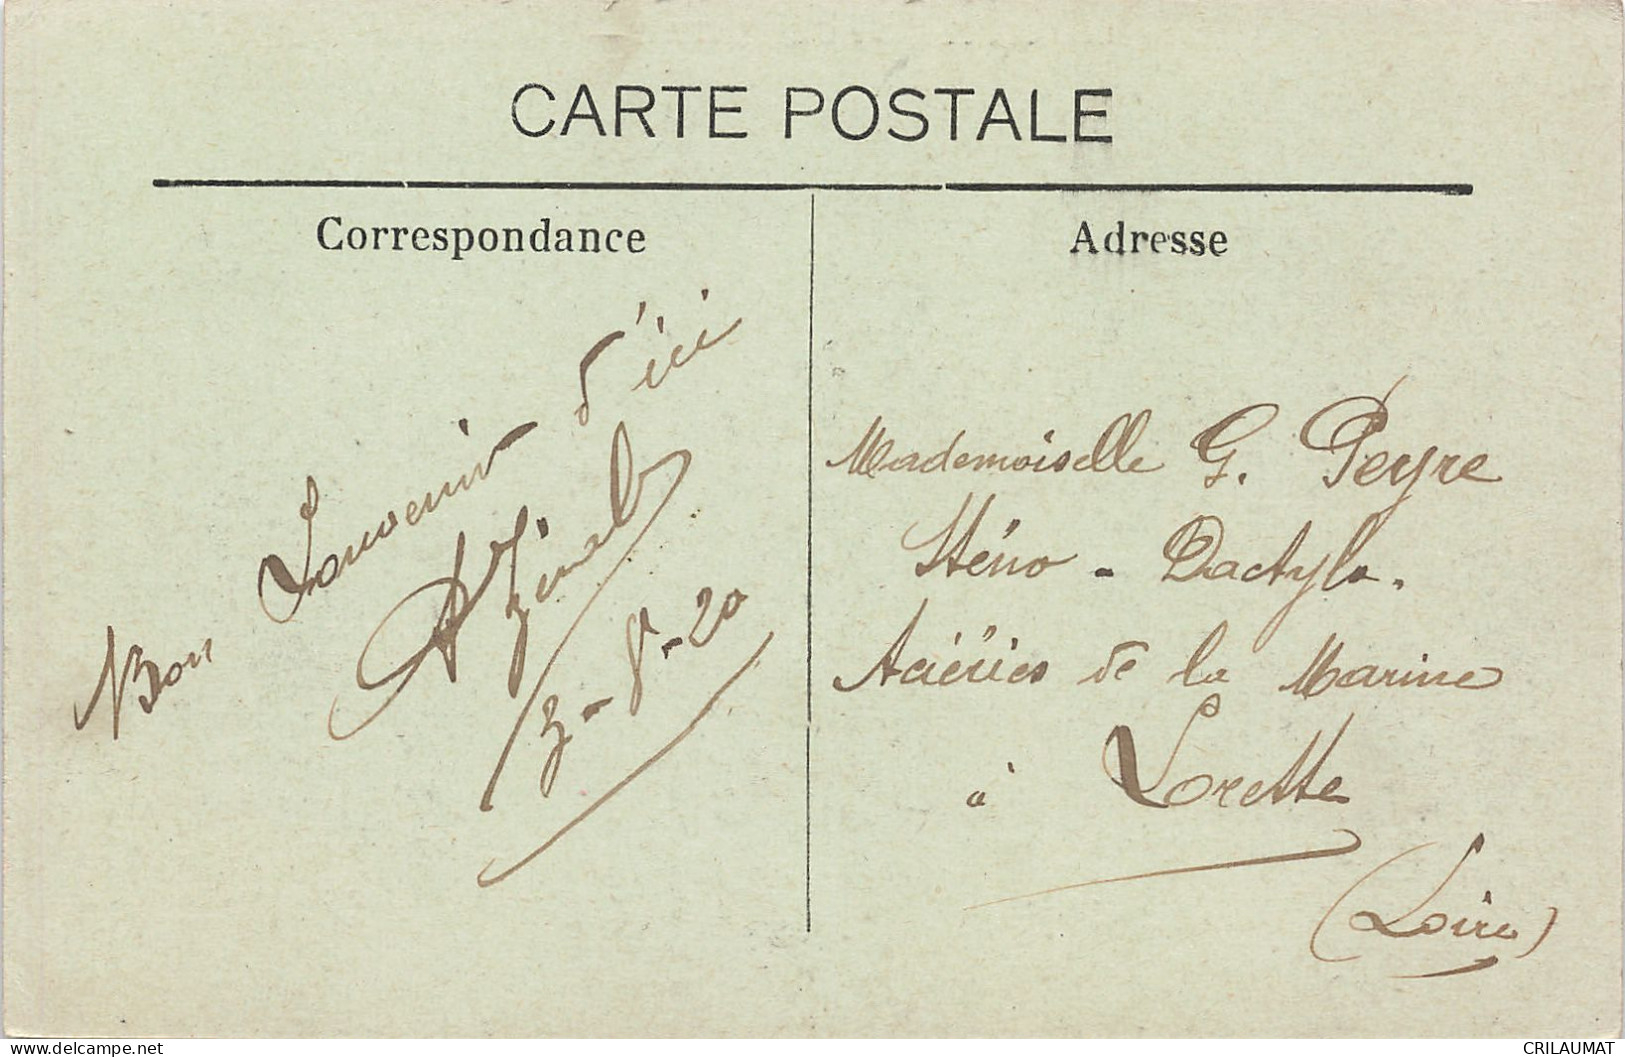 CARTE POSTALE
Correspondance
Bon Souvenir d'ici
3-8-20
Adresse
Mademoiselle G. Peyre
Sténo - Dactylo.
Aciéries de la Marine
à Lorette
(Loire)
www.delcampe.net
CRILAUMAT